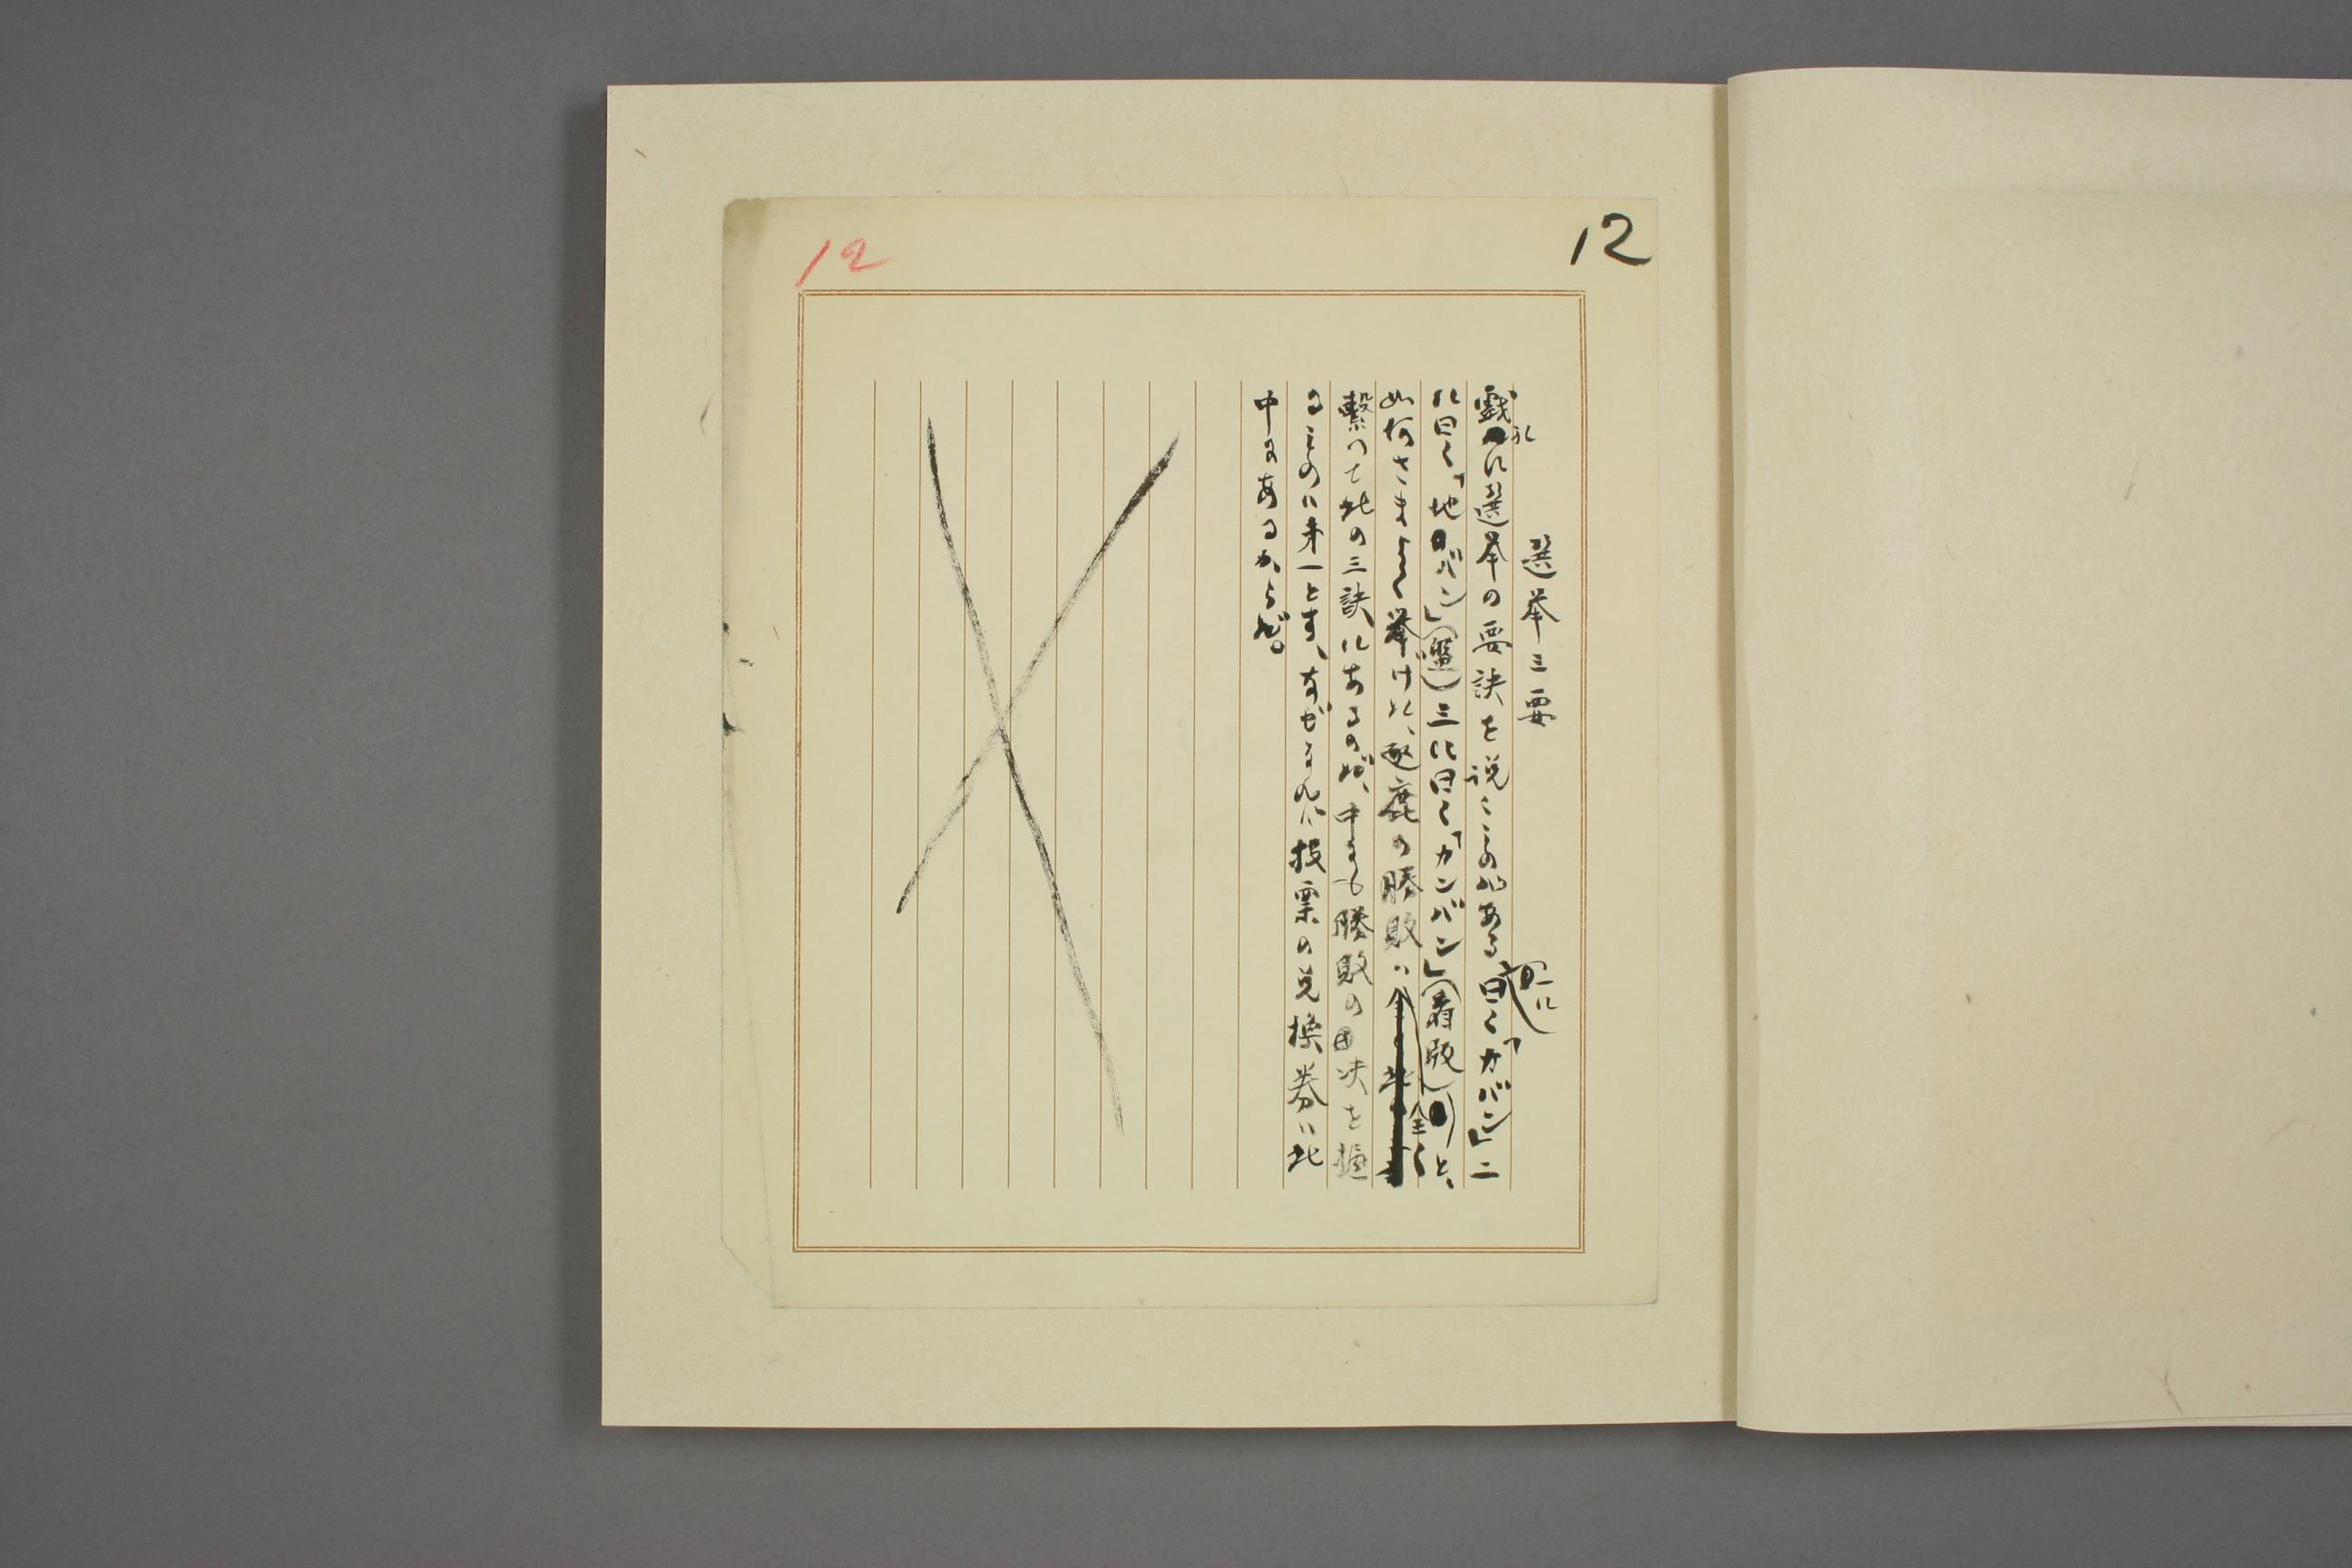 12
12
選挙三要
戯れに選挙の要訣を説くものがある一に曰く「カバン」二
に曰く「地バン」(盤)三に曰く「カンバン」(看版)と、
如何さまよく挙げた、逐鹿の勝敗は全く
繋つて此の三訣にあるのだ、中にも勝敗の決を握
るものは第一とす、なぜなれば投票の兌換券は此
中にあるからだ。